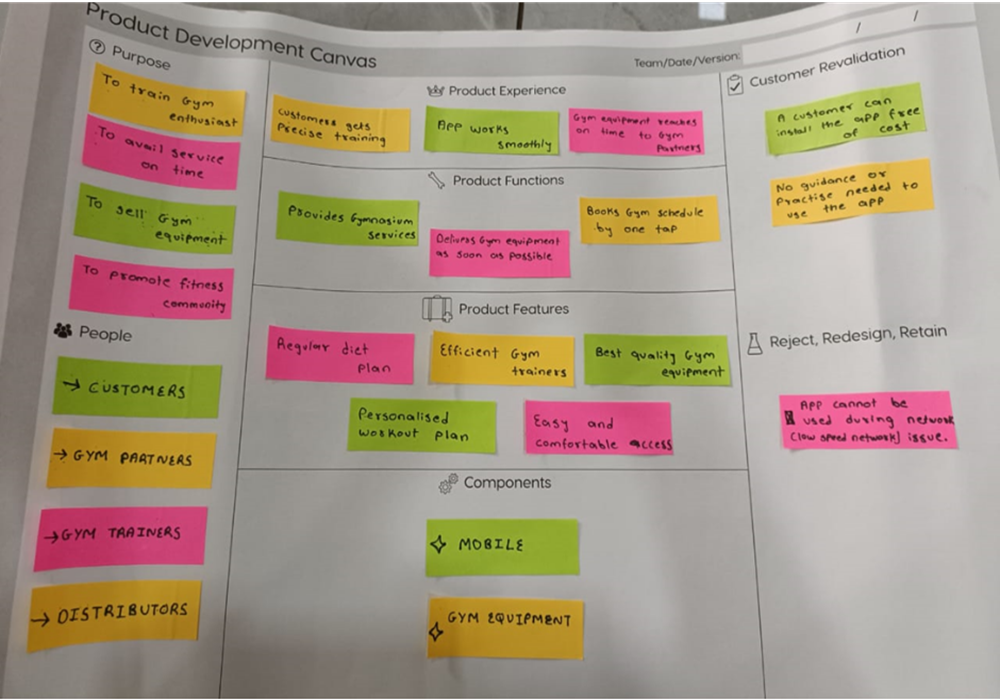 Product Development Canvas
Team/Date/Version:
/
/
Purpose
To train Gym
enthusiast
To avail service
on time
To sell Gym
equipment
To promote fitness
community
People
→ CUSTOMERS
→ GYM PARTNERS
→ GYM TRAINERS
→ DISTRIBUTORS
Product Experience
Customers gets
Precise training
App works
smoothly
Gym equipment reaches
on time to Gym
Partners
Product Functions
Provides Gymnasium
services
Delivers Gym equipment
as soon as possible
Books Gym schedule
by one tap
Product Features
Regular diet
plan
Efficient Gym
trainers
Best quality Gym
equipment
Personalised
workout plan
Easy and
comfortable access
Components
MOBILE
GYM EQUIPMENT
Customer Revalidation
A customer can
install the app free
of cost
No guidance or
Practise needed to
use the app
Reject, Redesign, Retain
App cannot be
used during network
(low speed network) issue.